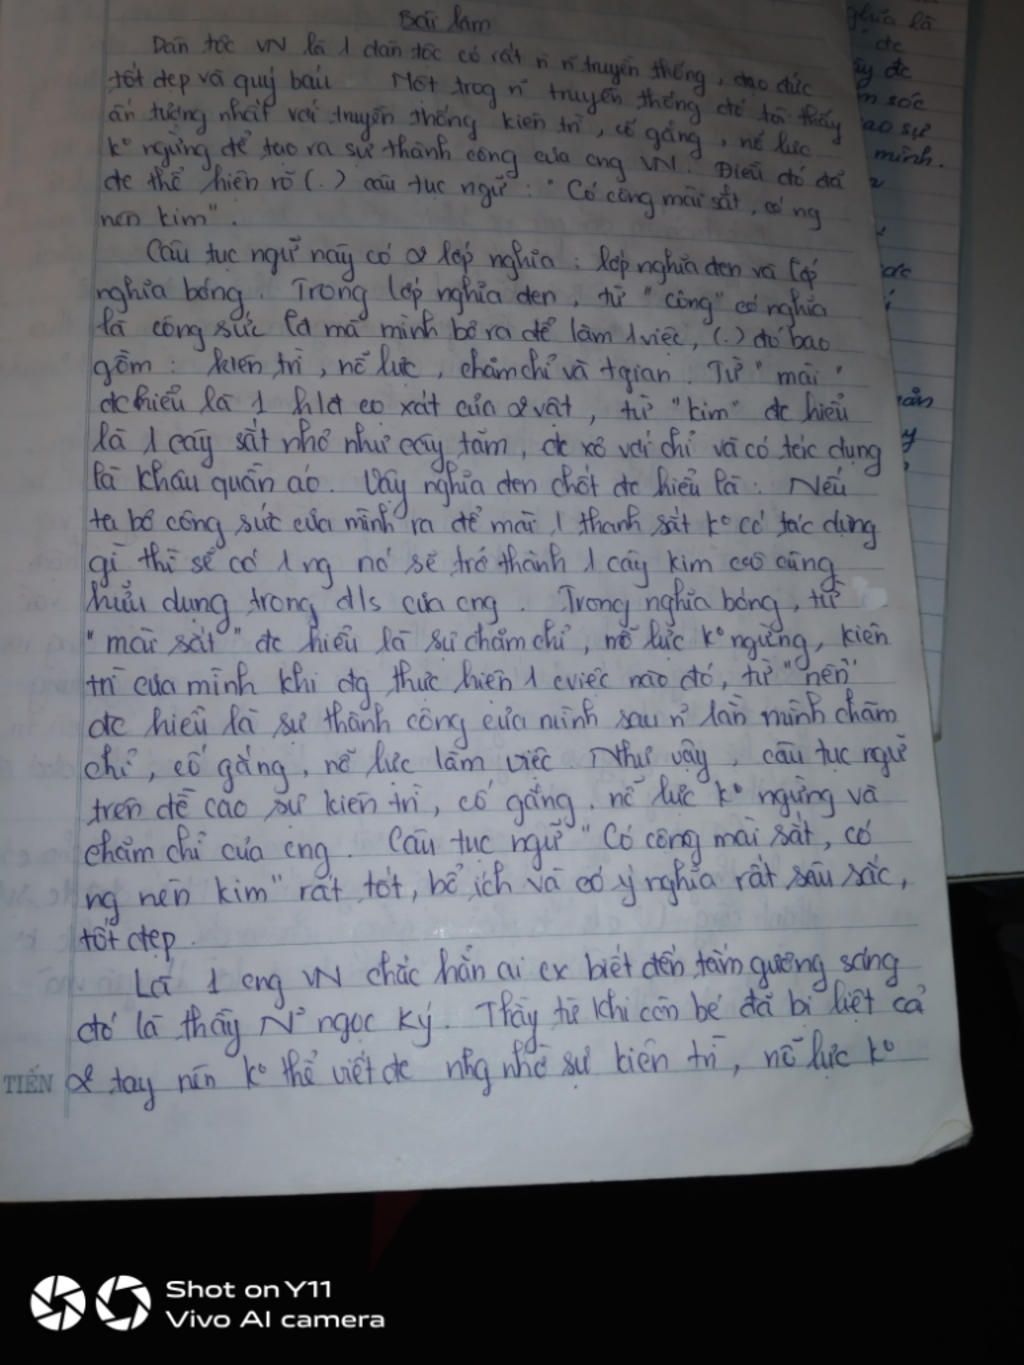 Bài làm
Dân tộc VN là 1 dân tộc có rất n n truyền thống, đạo đức
tốt đẹp và quý báu Một trog n truyền thống đó tôi thấy
ấn tượng nhất với truyền thống kiên trì, cố gắng, nỗ lực
k° ngừng để tạo ra sự thành công của cng VN. Điều đó đã
đc thể hiện rõ (.) câu tục ngữ: "Có công mài sắt, có ng
nên kim".
Câu tục ngữ này có 2 lớp nghĩa: lớp nghĩa đen và lớp
nghĩa bóng. Trong lớp nghĩa đen, từ "công" có nghĩa
là công sức mà mình bỏ ra để làm 1 việc, (.) đó bao
gồm: kiên trì, nỗ lực, chăm chỉ và tgian. Từ "mài"
đc hiểu là 1 hđ cọ xát của 2 vật, từ "kim" đc hiểu
là 1 cây sắt nhỏ như cây tăm, đc xỏ với chỉ và có tác dụng
là khâu quần áo. Vậy nghĩa đen chốt đc hiểu là: Nếu
ta bỏ công sức của mình ra để mài 1 thanh sắt k° có tác dụng
gì thì sẽ có 1 ng nó sẽ trở thành 1 cây kim vô cùng
hữu dụng trong đ/s của cng. Trong nghĩa bóng, từ
"mài sắt" đc hiểu là sự chăm chỉ, nỗ lực k° ngừng, kiên
trì của mình khi đg thực hiện 1 cviệc nào đó, từ "nên"
đc hiểu là sự thành công của mình sau n lần mình chăm
chỉ, cố gắng, nỗ lực làm việc Như vậy, câu tục ngữ
trên đề cao sự kiên trì, cố gắng, nỗ lực k° ngừng và
chăm chỉ của cng. Câu tục ngữ "Có công mài sắt, có
ng nên kim" rất tốt, bổ ích và có ý nghĩa rất sâu sắc,
tốt đẹp.
Là 1 cng VN chắc hẳn ai cx biết đến tấm gương sáng
đó là thầy N° ngọc Ký. Thầy từ khi còn bé đã bị liệt cả
2 tay nên k° thể viết đc nhg nhờ sự kiên trì, nỗ lực k°
TIẾN
ghĩa là
đc
ấy đc
m sóc
ao sự
mình.
Shot on Y11
Vivo AI camera